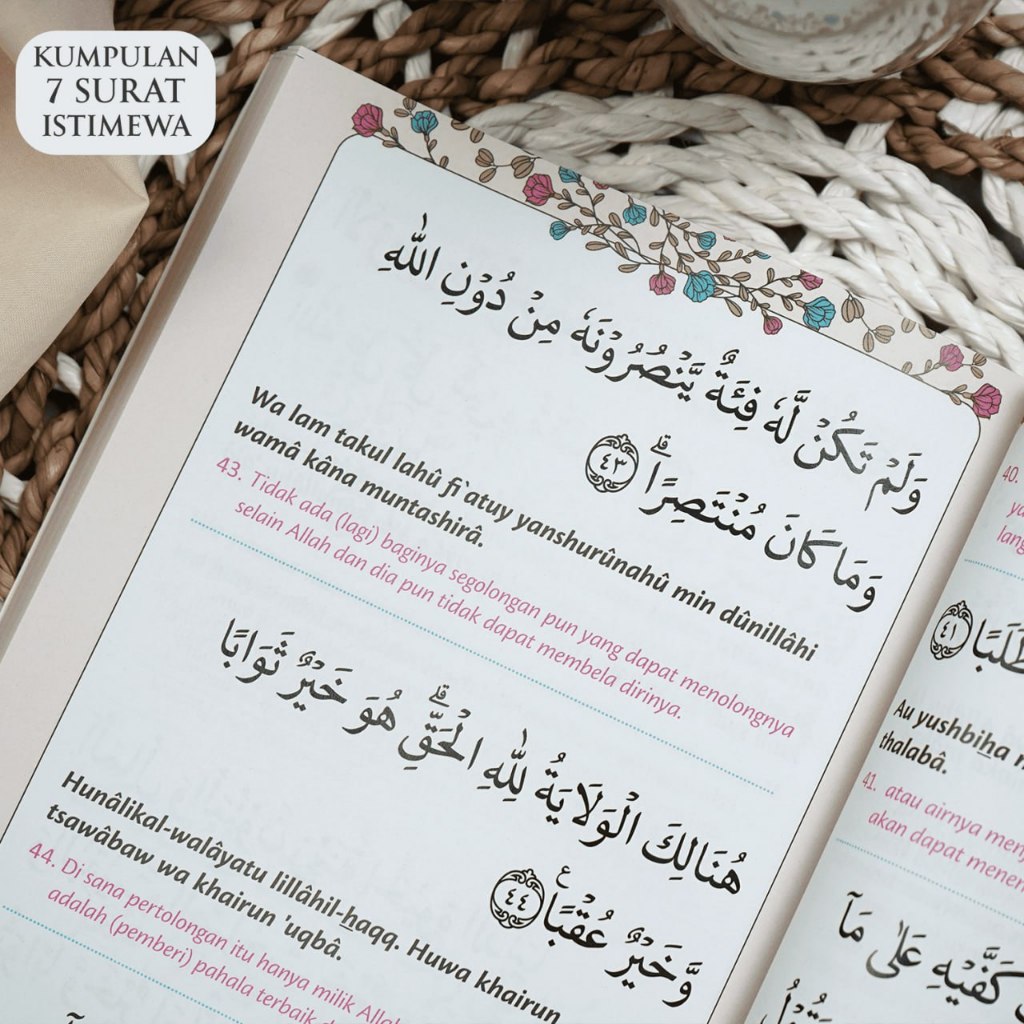 KUMPULAN
7 SURAT
ISTIMEWA
وَلَمْ تَكُنْ لَّهٗ فِئَةٌ يَّنْصُرُوْنَهٗ مِنْ دُوْنِ اللّٰهِ
وَمَا كَانَ مُنْتَصِرًاۗ ٤٣
Wa lam takul lahû fi`atuy yanshurûnahû min dûnillâhi
wamâ kâna muntashirâ.
43. Tidak ada (lagi) baginya segolongan pun yang dapat menolongnya
selain Allah dan dia pun tidak dapat membela dirinya.
هُنَالِكَ الْوَلَايَةُ لِلّٰهِ الْحَقِّۗ هُوَ خَيْرٌ ثَوَابًا
وَّخَيْرٌ عُقْبًاࣖ ٤٤
Hunâlikal-walâyatu lillâhil-haqq. Huwa khairun
tsawâbaw wa khairun 'uqbâ.
44. Di sana pertolongan itu hanya milik Allah
adalah (pemberi) pahala terbaik
40.
٤١
Au yushbiha
thalabâ.
41. atau airnya
akan dapat
كَفَّيْهِ عَلٰى مَآ